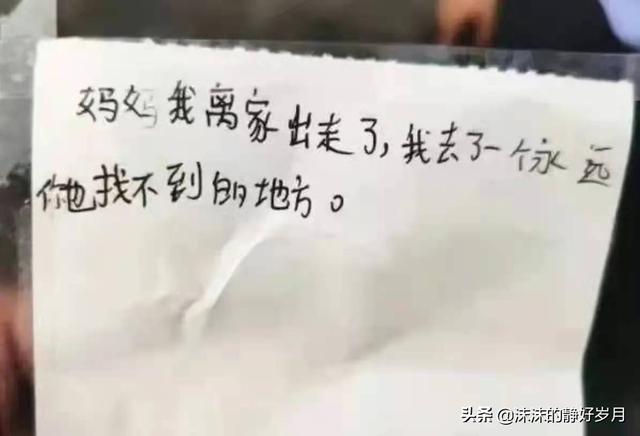 妈妈我离家出走了,我去了一个永远
你也找不到的地方。
头条 @沫沫的静好岁月